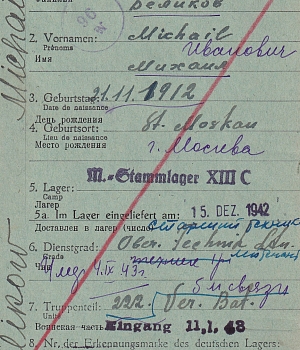 Великов
2. Vornamen: Michail
Prénoms Иванович
Имя Михаил
3. Geburtstag: 21.11.1912
Date de naissance
День рождения
4. Geburtsort: St. Moskau
Lieu de naissance
Место рождения г. Москва
M.-Stammlager XIII C
5. Lager:
Camp
Лагерь
5a. Im Lager eingeliefert am: 15. DEZ. 1942
Доставлен в лагерь (число) старший техник
6. Dienstgrad: Ober. Technik Ltn.
Grade лейтенант
Чин
IX 43г.
5 м. связи
7. Truppenteil: 222. Ver. Bat.
Воинская часть Eingang 11.1.43
Nr. der Erkennungsmarke des deutschen Lagers:
Michail
likow